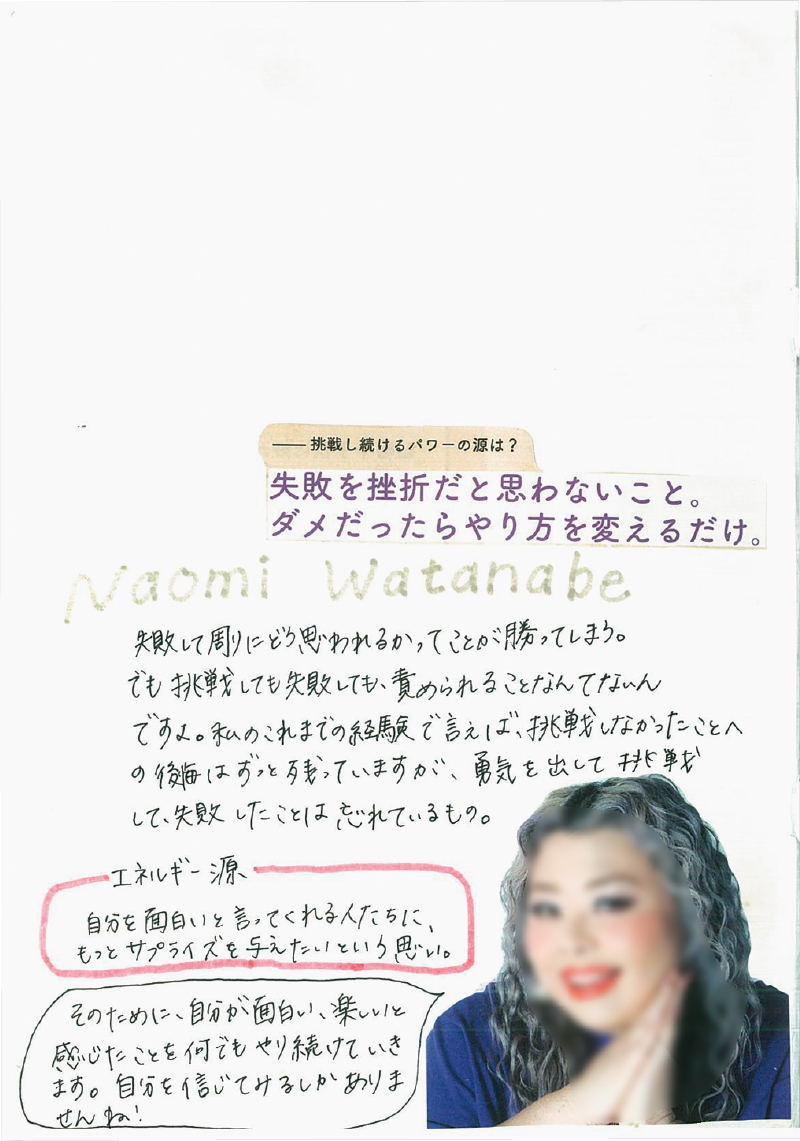 ――挑戦し続けるパワーの源は？
失敗を挫折だと思わないこと。
ダメだったらやり方を変えるだけ。
Naomi Watanabe
失敗して周りにどう思われるかってことが勝ってしまう。
でも挑戦しても失敗しても、責められることなんてないん
ですよ。私のこれまでの経験で言えば、挑戦しなかったことへ
の後悔はずっと残っていますが、勇気を出して挑戦
して、失敗したことは忘れているもの。
エネルギー源
自分を面白いと言ってくれる人たちに、
もっとサプライズを与えたいという思い。
そのために、自分が面白い、楽しいと
感じたことを何でもやり続けていき
ます。自分を信じてみるしかありま
せんね！